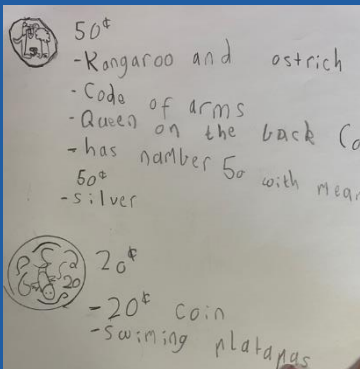 50¢
-Kangaroo and ostrich
- Code of arms
- Queen on the back
- has number 50 with
50¢
-silver
20
20¢
-20¢ coin
-swiming platapas